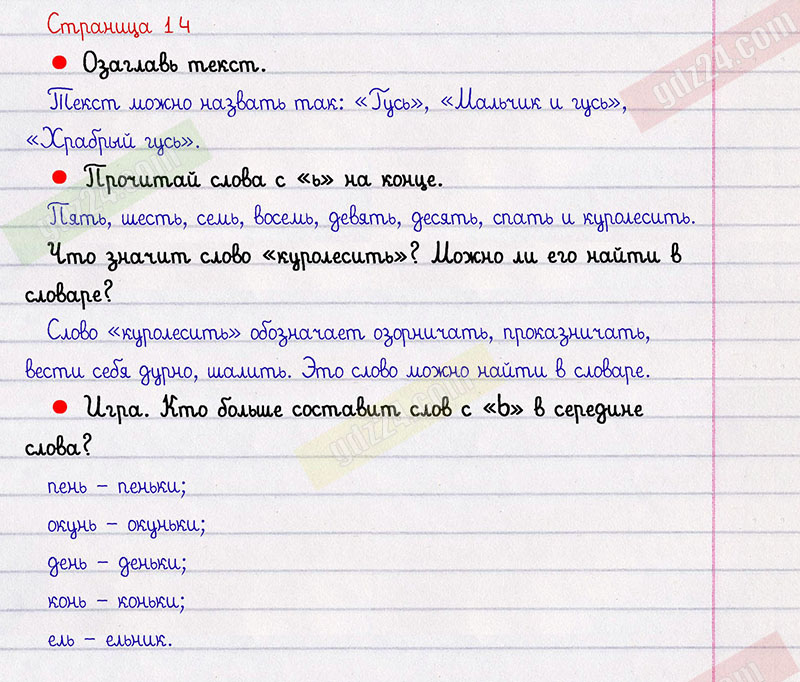 Страница 14
• Озаглавь текст.
Текст можно назвать так: «Гусь», «Мальчик и гусь»,
«Храбрый гусь».
• Прочитай слова с «ь» на конце.
Пять, шесть, семь, восемь, девять, десять, спать и куролесить.
Что значит слово «куролесить»? Можно ли его найти в
словаре?
Слово «куролесить» обозначает озорничать, проказничать,
вести себя дурно, шалить. Это слово можно найти в словаре.
• Игра. Кто больше составит слов с «ь» в середине
слова?
пень – пеньки;
окунь – окуньки;
день – деньки;
конь – коньки;
ель – ельник.
gdz24.com
gdz24.com
gdz24.com
gdz24.com